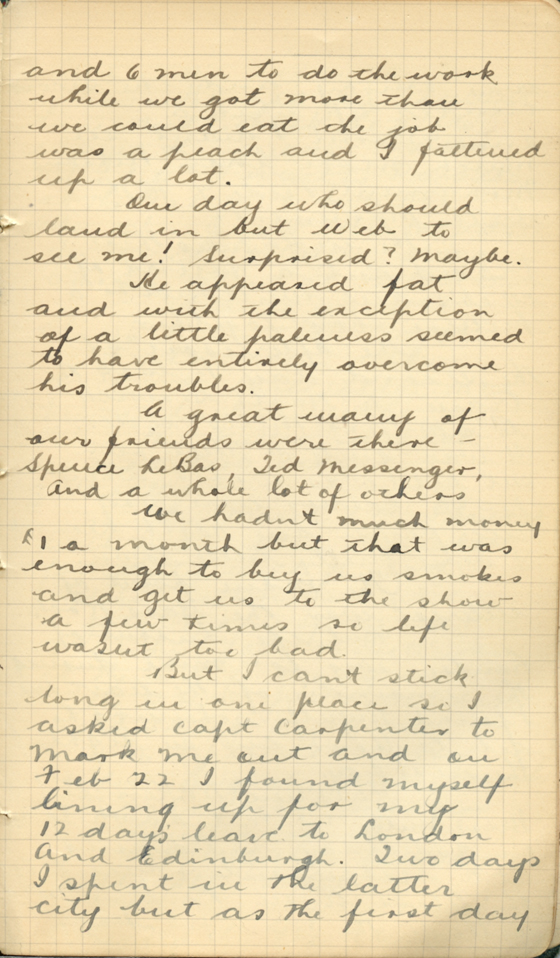 and 6 men to do the work
while we got more than
we could eat the job
was a peach and I fattened
up a lot.
One day who should
land in but Web to
see me! Surprised? Maybe.
He appeared fat
and with the exception
of a little paleness seemed
to have entirely overcome
his troubles.
A great many of
our friends were there -
Spence LeBas, Ted Messenger,
And a whole lot of others
We hadn't much money
£1 a month but that was
enough to buy us smokes
and get us to the show
a few times so life
wasnt too bad.
But I can't stick
long in one place so I
asked Capt Carpenter to
Mark me out and on
Feb 22 I found myself
lining up for my
12 days leave to London
And Edinburgh. Two days
I spent in the latter
city but as the first day